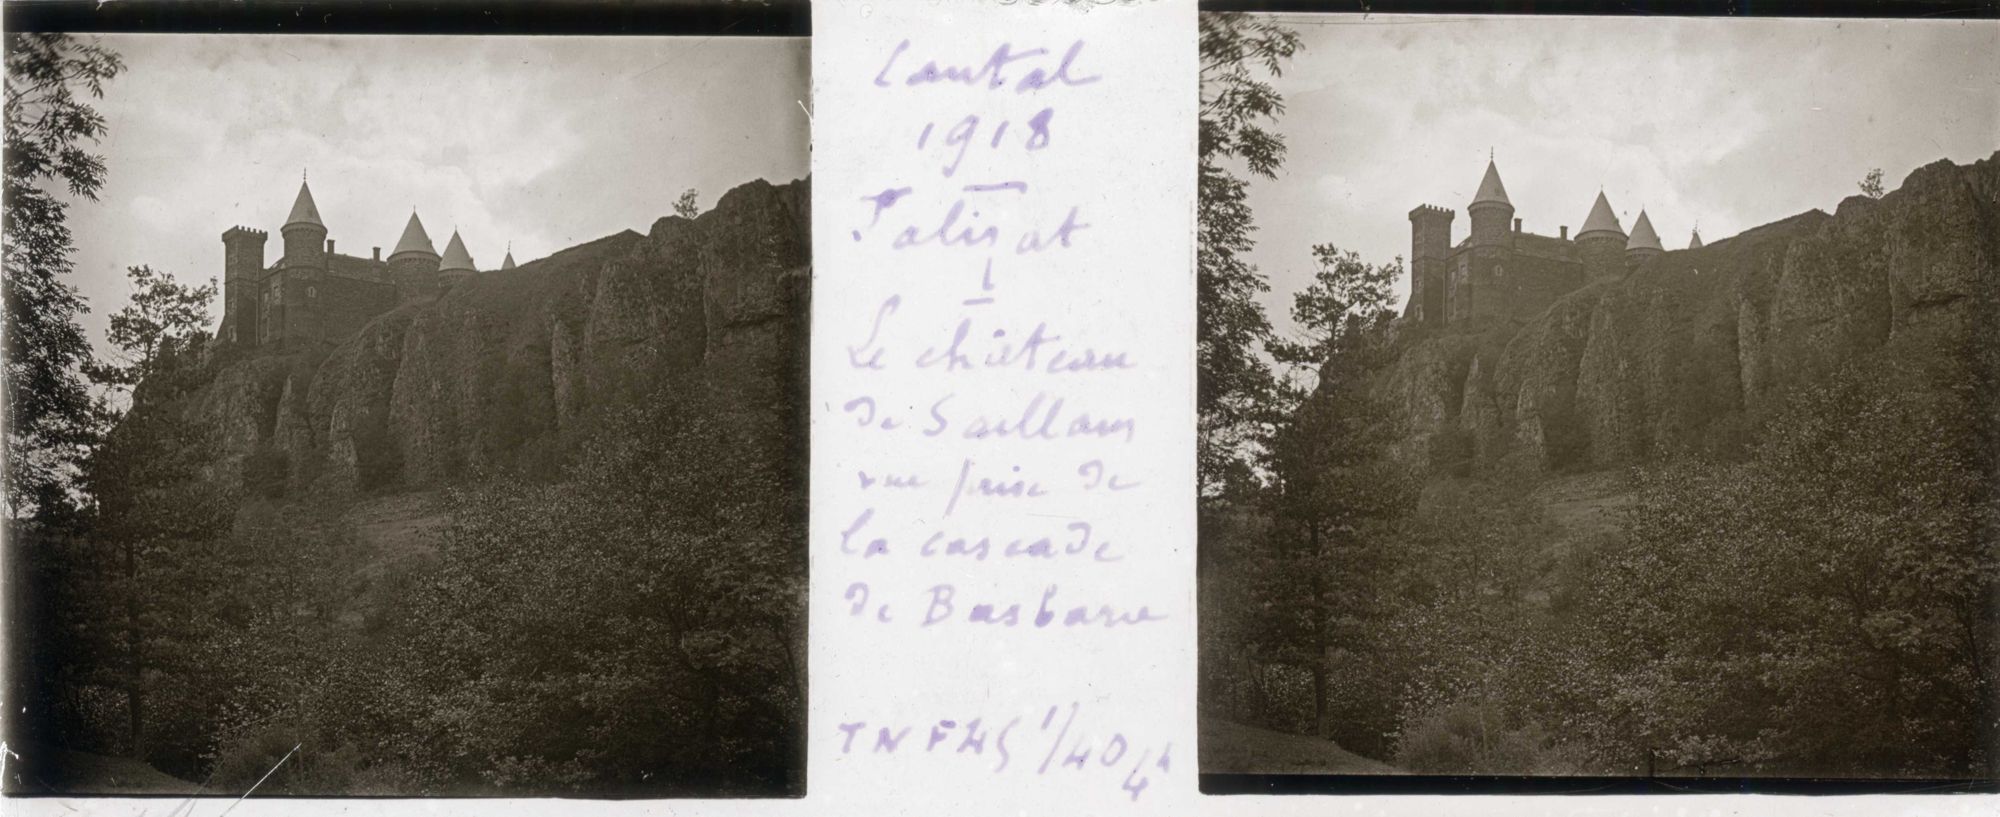 Cantal
1918
Talizat
1
Le château
de Saillans
vue prise de
la cascade
de Basbarie
TNF 4,5 1/40 4h